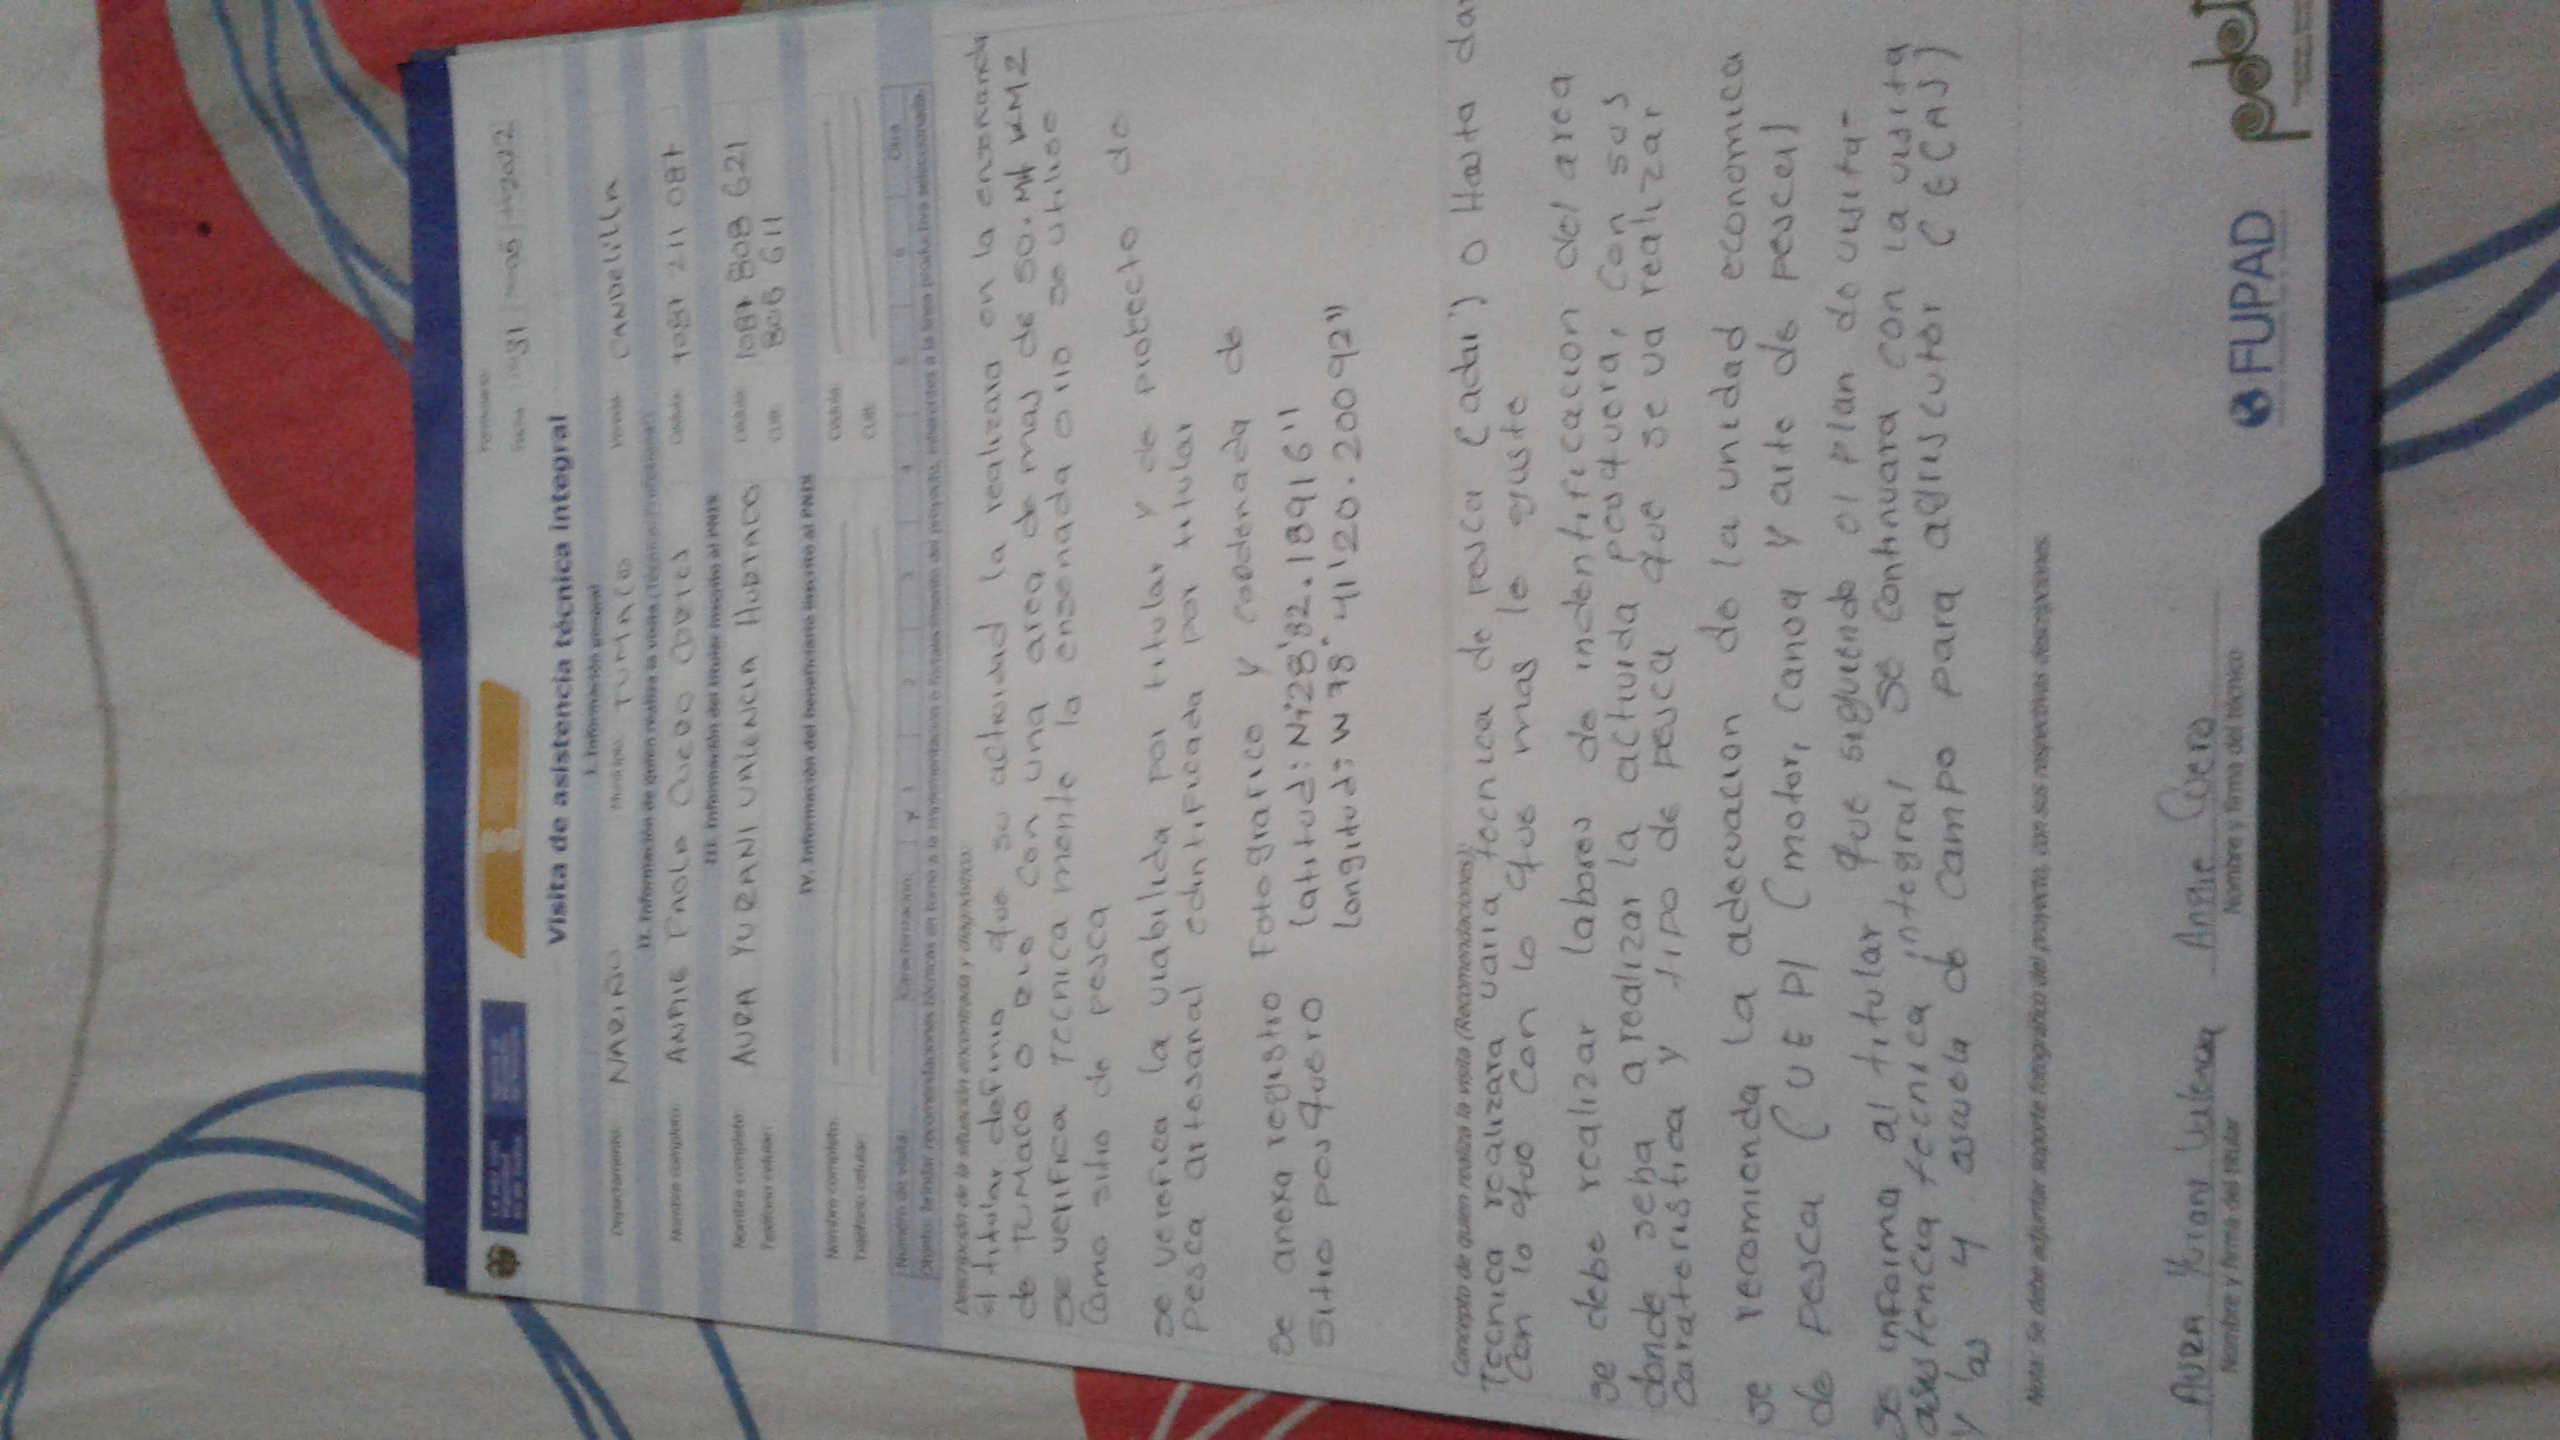 Formulario:
Fecha:
Visita de asistencia técnica integral
I. Información general
Departamento: NARIÑO Municipio: TUMACO Vereda: CANDELILLA
II. Información de quien realiza la visita (Técnico/Profesional)
Nombre completo: ANGIE PAOLA Cédula: 1087 211 087
III. Información del titular inscrito al PNIS
Nombre completo: AURA YURANI VALENCIA HURTADO Cédula: 1087 808 621
Teléfono celular: CUB: 808 611
IV. Información del beneficiario inscrito al PNIS
Nombre completo: Cédula:
Teléfono celular: CUB:
Número de visita: Caracterización: 1 2 3 4 5 6 Otra
Objeto: brindar recomendaciones técnicas en torno a la implementación o fortalecimiento del proyecto, inherentes a la línea productiva seleccionada.
Descripción de la situación encontrada y diagnóstico:
el titular definio que su actividad la realizara en la ensenanda
de TUMaco o Rio con una area de mas de 50. KM2
se verifica Tecnica mente la ensenada o rio se utiliso
Como sitio de pesca
se verefica la viabilida por titular y de protecto de
pesca artesanal edintificada por titular
Se anexa registro Fotografico y cordenada de
Sitio pesquero latitud:
longitud: W 78° 41' 20. 20092"
Concepto de quien realiza la visita (Recomendaciones):
Tecnica realizara varia tecnica de Pesca ( adar) o Hasta dar
Con lo que Con lo que mas le ajuste
se debe realizar labores de indentificacion del area
donde seba a realizar la actiuida pesquera, Con sus
Carateristica y tipo de pesca que se va realizar
se recomienda la adecuacion de la unidad economica
de pesca ( UEP) ( motor, Canoa y arte de pesces)
se informa al titular que siguendo el plan de visita-
asistencia tecnica integral se Continuara con la visita
y las 4 escuela de Campo para agriscutor ( ECAS)
Nota: Se debe adjuntar soporte fotográfico del proyecto, con sus respectivas descripciones.
AURA Yurany Valencia
Nombre y firma del titular
Angie
Nombre y firma del técnico
FUPAD